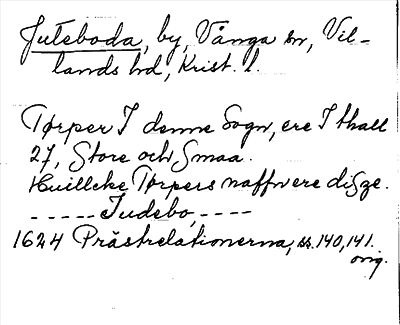 Juteboda, by, Vånga sn, Vil-
lands hd, Krist. l.
Tørper I denne Sogn, ere I thall
27, Store och Smaa.
Huillcke Tørpers naffn ere disze.
- - - - - Judebo, - - - -
1624 Prästrelationerna, ss. 140, 141.
orig.